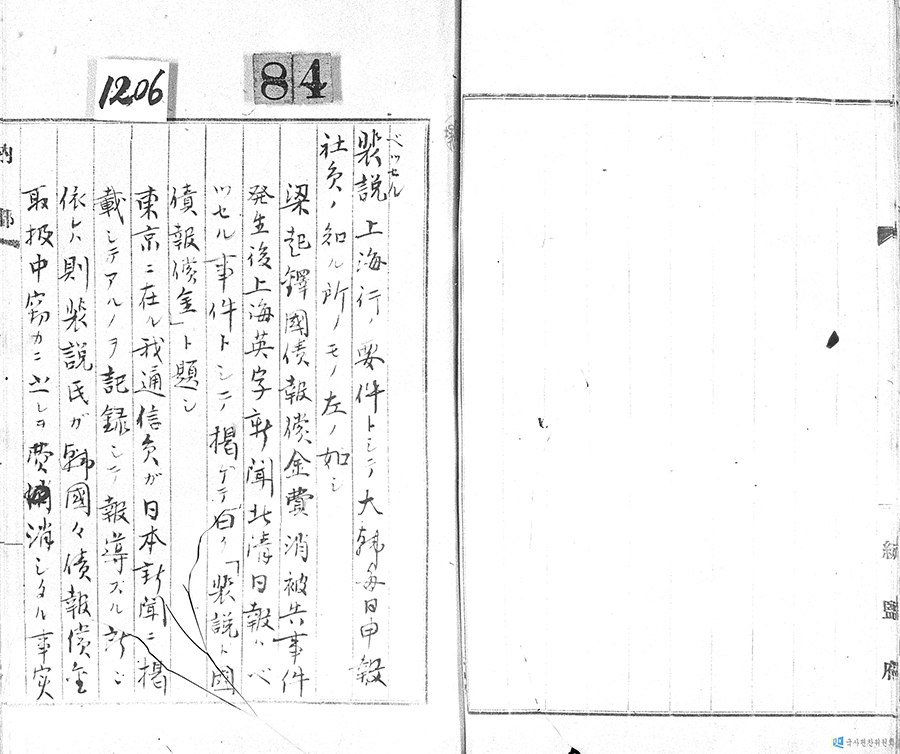 1206
84
ベッセル
裴説上海行ノ要件トシテ大韓每日申報
社員ノ知ル所ノモノ左ノ如シ
梁起鐸國債報償金費消被告事件
発生後上海英字新聞北清日報ハベ
ツセル事件トシテ掲ゲテ曰ク「裴説ト國
債報償金」ト題シ
東京ニ在ル我通信員ガ日本新聞ニ掲
載シテアルノヲ記録シテ報導スル所ニ
依レハ則裴説氏ガ韓國々債報償金
取扱中窃カニ之レヲ費消シタル事実
内
部
統
監
府
국사편찬위원회